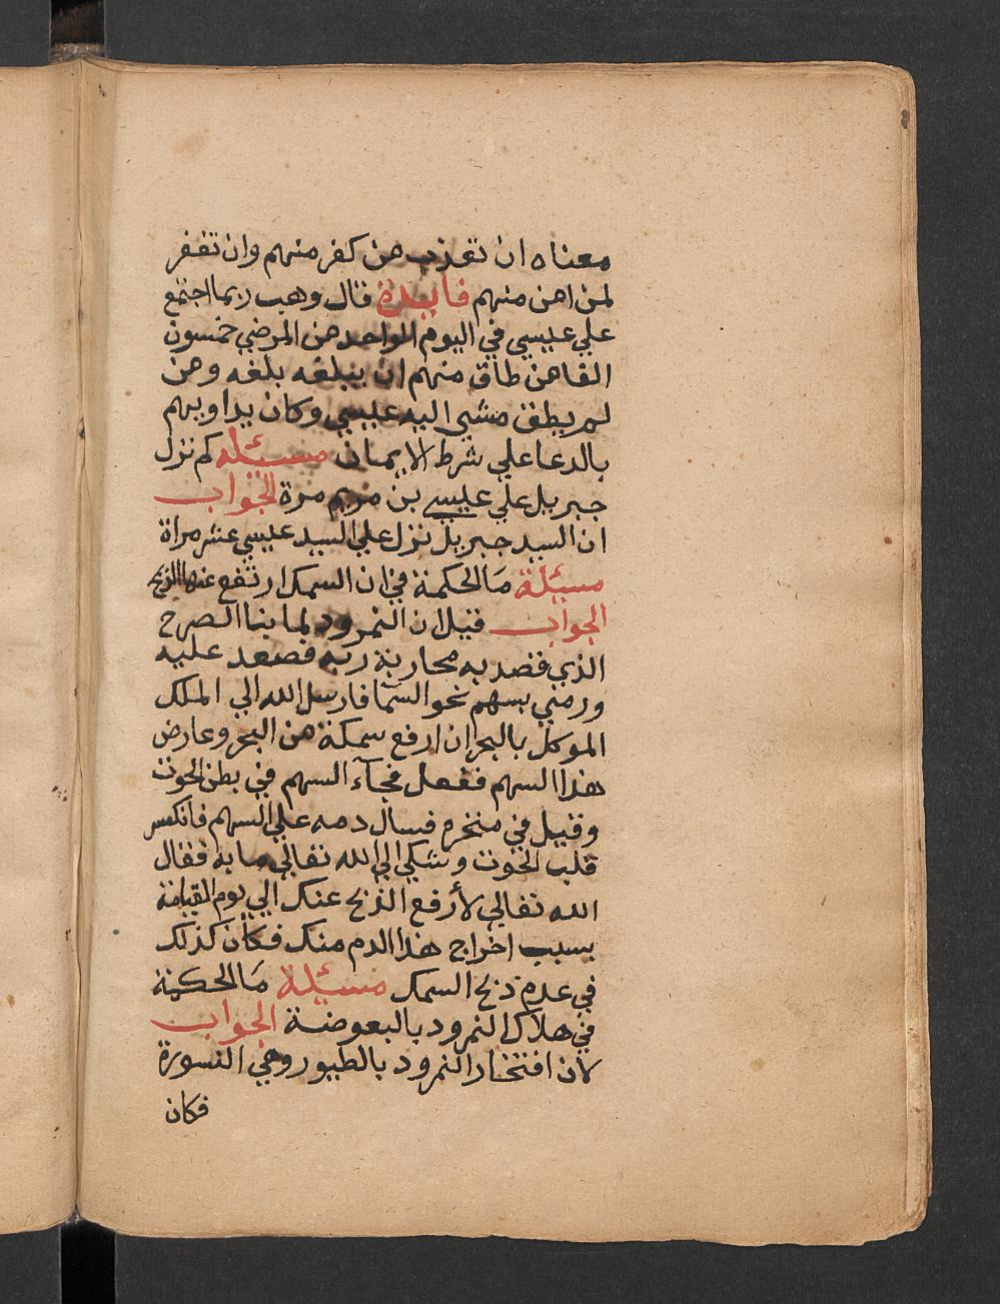 معناه ان تعذب من كفر منهم وان تغفر
لمن امن منهم فايدة قال وهب ربما اجتمع
علي عيسي في اليوم الواحد من المرضي خمسون
الفا من طاق منهم ان يبلغه بلغه ومن
لم يطق مشي اليه عيسي وكان يداويهم
بالدعا علي شرط الايمان مسئلة كم نزل
جبريل علي عيسي بن مريم مرة الجواب
ان السيد جبريل نزل علي السيد عيسي عشر مراة
مسئلة ما الحكمة في ان السمك ارتفع عنها الذبح
الجواب قيل ان النمرود لما بنا الصرح
الذي قصد به محاربة ربه فصعد عليه
ورمي بسهم نحو السما فارسل الله الي الملك
الموكل بالبحر ان ارفع سمكة من البحر وعارض
هذا السهم ففعل فجآء السهم في بطن الحوت
وقيل في منخره فسال دمه علي السهم فانكسر
قلب الحوت وشكي الي الله تعالي ما به فقال
الله تعالي لأرفع الذبح عنك الي يوم القيامة
بسبب اخراج هذا الدم منك فكان كذلك
في عدم ذبح السمك مسئلة ما الحكمة
في هلاك النمرود بالبعوضة الجواب
لان افتخار النمرود بالطيور وهي النسورة
فكان